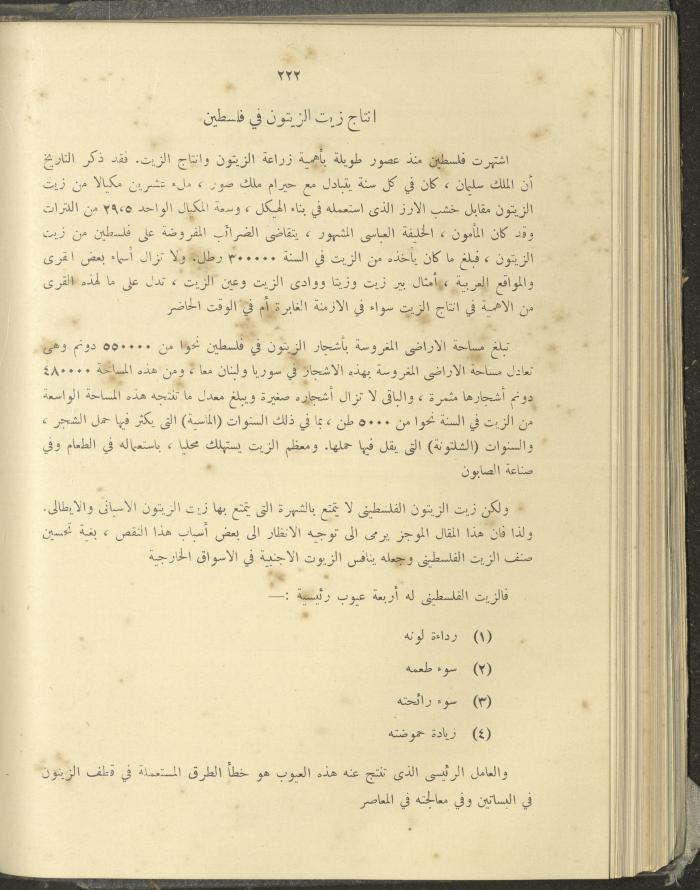 ٢٢٢
انتاج زيت الزيتون في فلسطين
اشتهرت فلسطين منذ عصور طويلة بأهمية زراعة الزيتون وانتاج الزيت. فقد ذكر التاريخ
أن الملك سليمان ، كان في كل سنة يتبادل مع حيرام ملك صور ، ملء عشرين مكيالا من زيت
الزيتون مقابل خشب الارز الذى استعمله في بناء الهيكل ، وسعة المكيال الواحد ٢٩،٥ من اللترات
وقد كان المأمون ، الخليفة العباسى المشهور ، يتقاضى الضرائب المفروضة على فلسطين من زيت
الزيتون ، فبلغ ما كان يأخذه من الزيت في السنة ٣٠٠٠٠٠ رطل. ولا تزال أسماء بعض القرى
والمواقع العربية ، أمثال بير زيت وزيتا ووادى الزيت وعين الزيت ، تدل على ما لهذه القرى
من الاهمية في انتاج الزيت سواء في الازمنة الغابرة أم في الوقت الحاضر
تبلغ مساحة الاراضى المغروسة بأشجار الزيتون في فلسطين نحوا من ٥٥٠٠٠٠ دونم وهى
تعادل مساحة الاراضى المغروسة بهذه الاشجار في سوريا ولبنان معا ، ومن هذه المساحة ٤٨٠٠٠٠
دونم أشجارها مثمرة ، والباقى لا تزال أشجاره صغيرة ويبلغ معدل ما تنتجه هذه المساحة الواسعة
من الزيت في السنة نحوا من ٥٠٠٠ طن ، بما في ذلك السنوات (الماسية) التى يكثر فيها حمل الشجر ،
والسنوات (الشلتونة) التى يقل فيها حملها. ومعظم الزيت يستهلك محليا ، باستعماله في الطعام وفي
صناعة الصابون
ولكن زيت الزيتون الفلسطينى لا يتمتع بالشهرة التى يتمتع بها زيت الزيتون الاسبانى والايطالى.
ولذا فان هذا المقال الموجز يرمى الى توجيه الانظار الى بعض أسباب هذا النقص ، بغية تحسين
صنف الزيت الفلسطينى وجعله ينافس الزيوت الاجنبية في الاسواق الخارجية
فالزيت الفلسطينى له أربعة عيوب رئيسية :—
(١) رداءة لونه
(٢) سوء طعمه
(٣) سوء رائحته
(٤) زيادة حموضته
والعامل الرئيسى الذى تنتج عنه هذه العيوب هو خطأ الطرق المستعملة في قطف الزيتون
في البساتين وفي معالجته في المعاصر